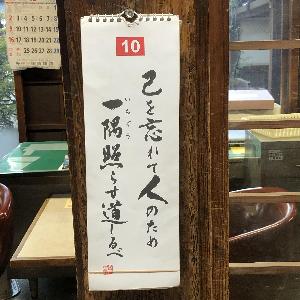 10
己を忘れて人のため
いちぐう
一隅照らす道しるべ